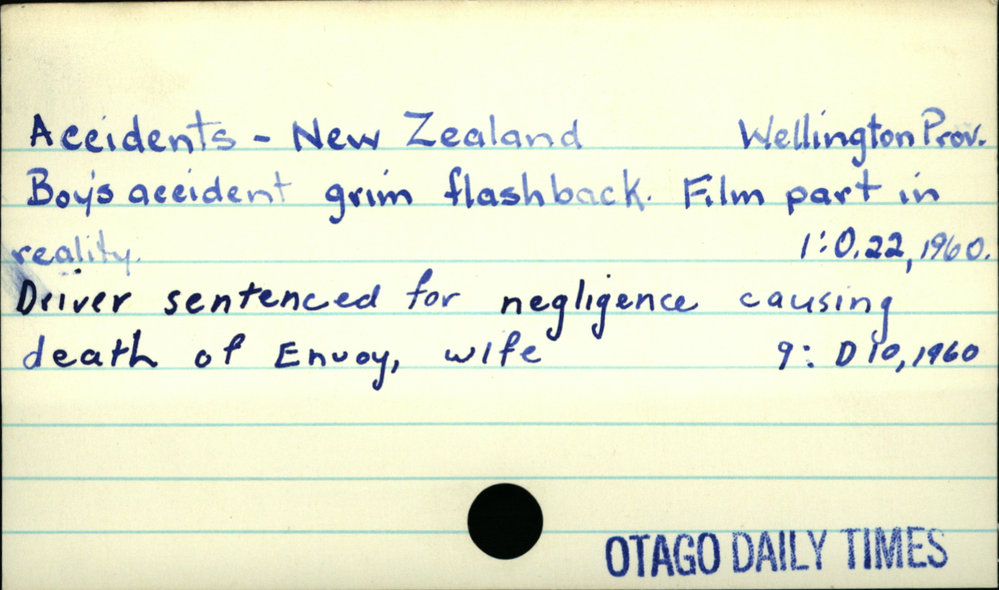 Accidents - New Zealand Wellington Prov.
Boy's accident grim flashback. Film part in
reality. 1:O.22, 1960.
Driver sentenced for negligence causing
death of Envoy, wife 9: D 10, 1960
OTAGO DAILY TIMES